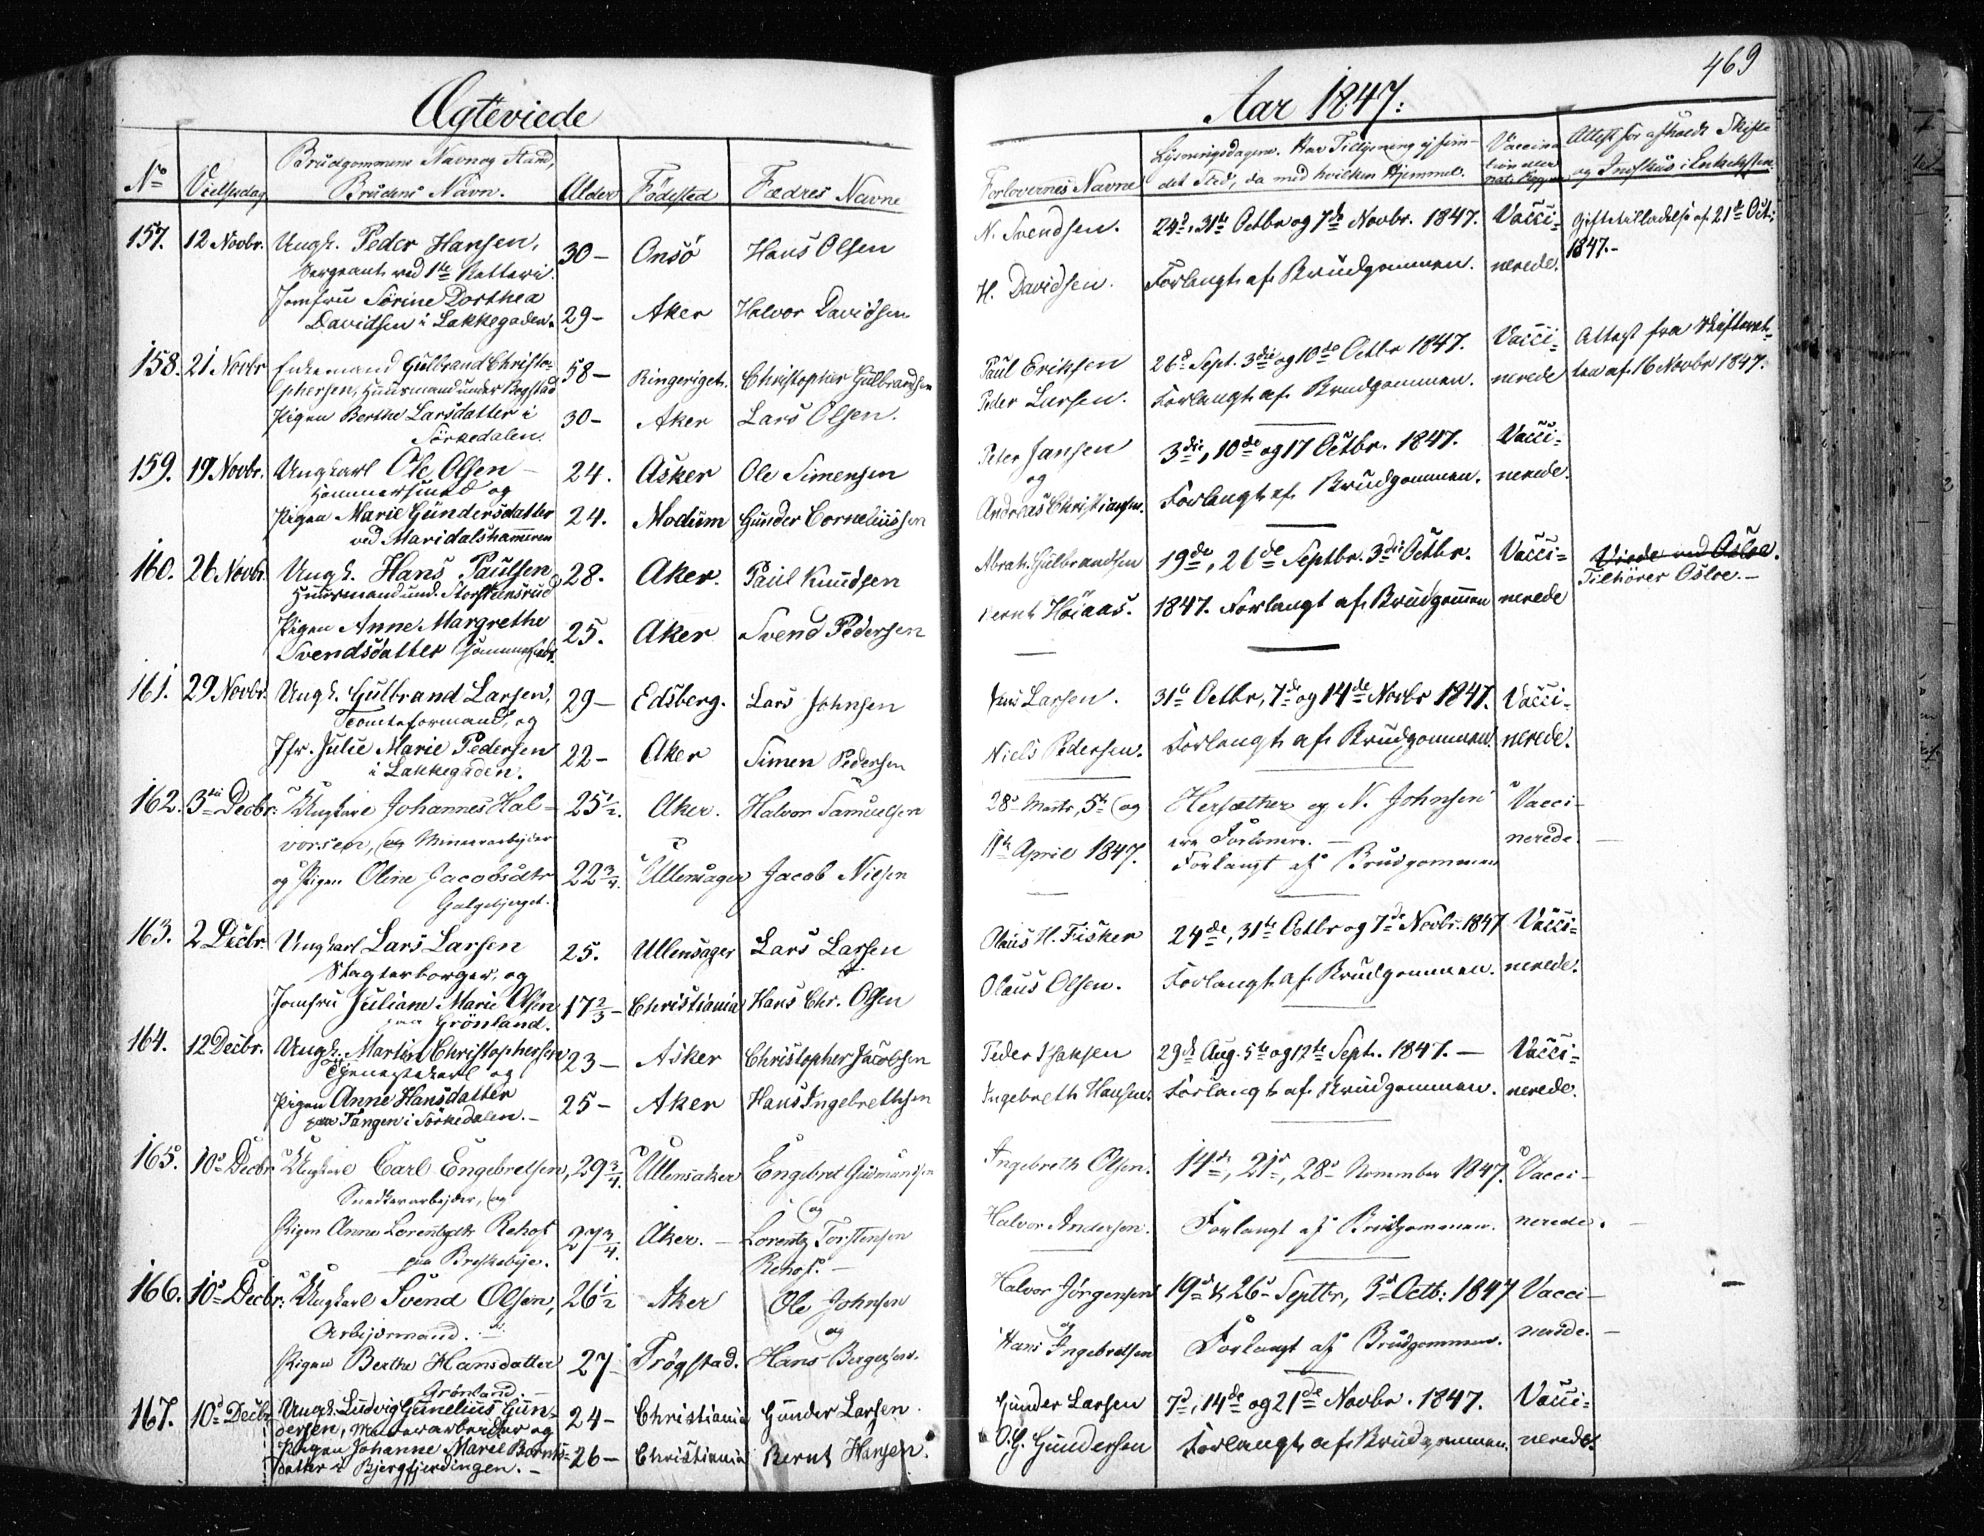 469
Ægteviede
Aar 1847:
No
Vielsesdag
Brudgommens Navn og Stand,
Brudens Navn.
Alder
Fødested
Fædres Navne
Forlovernes Navne
Lysningsdagene. Har Tillysning ej fun-
det Sted, da med hvilken Hjemmel.
Vaccina
Attest for afholdt Skifte
157. 12 Novbr. Ungk. Peder Hansen, 30 – Onsö Hans Olsen
Sergeant ved 1te Batteri.
Jomfru Sörine Dorthea
Davidsen i Lakkegaden. 29 – Aker Halvor Davidsen
N. Svendsen. 24d, 31te Octbr og 7de Novbr. 1847. Vacci- Giftetilladelse af 21de Oct:
H. Davidsen. Forlangt af Brudgommen. nerede. 1847. –
158. 21 Novbr Enkemand Gulbrand Christo- 58 – Ringeriget. Christopher Gulbrandsen
phersen, Huusmand under Bogstad
Pigen Berthe Larsdatter i 30 – Aker Lars Olsen.
Sörkedalen.
Paul Eriksen 26d Sept. 3die og 10de Octbr 1847. Vacci- Attest fra Skifteret-
Peder Larsen. Forlangt af Brudgommen. nerede ten af 16 Novbr 1847.
159. 19 Novbr. Ungkarl Ole Olsen – 24. Asker Ole Simensen
Hammersmed og
Pigen Marie Gundersdatter 24. Modum Gunder Corneliussen
ved Maridalshammeren
Peter Jansen 3die, 10de og 17 Octbr. 1847. Vacci-
og
Andreas Christiansen. Forlangt af Brudgommen. nerede.
160. 26 Novbr. Ungk. Hans Paulsen 28. Aker. Paul Knudsen
Huusmand und. Storsteensrud
Pigen Anne Margrethe 25. Aker Svend Pedersen
Svendsdatter
Abrah. Gulbrandsen 19de, 26de Septbr. 3die Octbr. Vacci- Viede ved Osloe.
Tilhörer Osloe. –
Bernt Höiaas. 1847. Forlangt af Brudgommen nerede
161. 29 Novbr. Ungk. Gulbrand Larsen, 29 – Edsberg. Lars Johnsen
Tomteformand, og
Jfr. Julie Marie Pedersen 22 – Aker Simen Pedersen
i Lakkegaden.
Larsen. 31te Octbr, 7de og 14de Novbr 1847. Vacci-
Niels Pedersen. Forlangt af Brudgommen. nerede.
162. 3die Decbr: Ungkarl Johannes Hal- 25½. Aker. Halvor Samuelsen
vorsen, og Minearbejder
og Pigen Oline Jacobsdtr 22¾. Ullensager Jacob Nilsen
Galgebjerget.
28d Marts, 5te og Hersæther og N. Johnsen Vacci-
11te April 1847. ere Forlovere. – nerede. –
Forlangt af Brudgommen
163. 2 Decbr. Ungkarl Lars Larsen 25. Ullensager Lars Larsen
Slagterborger, og
Jomfru Juliane Marie Olsen 17⅔ – Christiania Hans Chr. Olsen
paa Grönland.
Olaus H. Fisker 24de, 31te Octbr og 7de Novbr. 1847 Vacci-
Olaus Olsen. Forlangt af Brudgommen. nerede.
164. 12 Decbr. Ungk. Martin Christophersen 23 – Asker Christopher Jacobsen
Tjenestekarl og
Pigen Anne Hansdatter 25 – Aker Hans Ingebrethsen
paa Tangen i Sörkedalen. –
Peder Isaksen 29de Aug. 5te og 12te Sept. 1847. – Vacci-
Ingebreth Hansen. Forlangt af Brudgommen. nerede.
165. 10d Decbr. Ungkarl Carl Engebretsen, 29¾. Ullensaker Engebret Gudmundsen
Snedkerarbejder, og og
Pigen Anne Lorentzdtr Rehof 27¾. Aker. – Lorentz Torstensen
paa Breskebye. Rehof. –
Ingebreth Olsen. 14de, 21de, 28d November 1847. Vacci-
Halvor Andersen. Forlangt af Brudgommen. nerede. –
166. 10d Decbr: Ungkarl Svend Olsen, 26½ Aker Ole Johnsen
Arbejdsmand. og
Pigen Berthe Hansdatter 27 – Trögstad. Hans Bergersen.
Grönland. –
Halvor Jørgensen 19d & 26d Septbr, 3d Octb: 1847 Vacci- –
og
Hans Ingebretsen Forlangt af Brudgommen. nerede. –
167. 10d Decbr Ungk. Ludvig Gunelius Gun- 24 – Christiania Gunder Larsen.
dersen, Murerarbeider og
Pigen Johanne Marie Bernts- 26 – Christiania Bernt Hansen.
datter i Bjergfjerdingen. –
Gunder Larsen 7d, 14de og 21de Novbr. 1847. Vacci-
O. G. Gundersen Forlangt af Brudgommen. nerede.